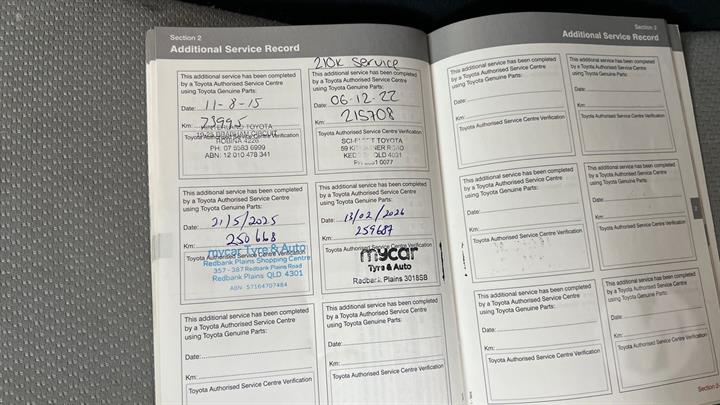 Section 2
Additional Service Record
210K Service
This additional service has been completed
by a Toyota Authorised Service Centre
using Toyota Genuine Parts:
Date: 11-8-15
Km: 73995
Toyota Authorised Service Centre Verification
TOYOTA
ROBINA 4226
PH: 07 5583 6999
ABN: 12 010 478 341
This additional service has been completed
by a Toyota Authorised Service Centre
using Toyota Genuine Parts:
Date: 06-12-22
Km: 215708
Toyota Authorised Service Centre Verification
SCI-FLEET TOYOTA
QLD 4031
0077
This additional service has been completed
by a Toyota Authorised Service Centre
using Toyota Genuine Parts:
Date: 21/5/2025
Km: 250668
Toyota Authorised Service Centre Verification
mycar Tyre & Auto
Redbank Plains Shopping Centre
357 - 387 Redbank Plains Road
Redbank Plains QLD 4301
ABN: 57164707484
This additional service has been completed
by a Toyota Authorised Service Centre
using Toyota Genuine Parts:
Date: 13/02/2026
Km: 259687
Toyota Authorised Service Centre Verification
mycar
Tyre & Auto
Redbank Plains 3018SB
This additional service has been completed
by a Toyota Authorised Service Centre
using Toyota Genuine Parts:
Date:
Km:
Toyota Authorised Service Centre Verification
This additional service has been completed
by a Toyota Authorised Service Centre
using Toyota Genuine Parts:
Date:
Km:
Toyota Authorised Service Centre Verification
Section 2
Additional Service Record
This additional service has been completed
by a Toyota Authorised Service Centre
using Toyota Genuine Parts:
Date:
Km:
Toyota Authorised Service Centre Verification
This additional service has been completed
by a Toyota Authorised Service Centre
using Toyota Genuine Parts:
Date:
Km:
Toyota Authorised Service Centre Verification
This additional service has been completed
by a Toyota Authorised Service Centre
using Toyota Genuine Parts:
Date:
Km:
Toyota Authorised Service Centre Verification
This additional service has been completed
by a Toyota Authorised Service Centre
using Toyota Genuine Parts:
Date:
Km:
Toyota Authorised Service Centre Verification
This additional service has been completed
by a Toyota Authorised Service Centre
using Toyota Genuine Parts:
Date:
Km:
Toyota Authorised Service Centre Verification
This additional service has been completed
by a Toyota Authorised Service Centre
using Toyota Genuine Parts:
Date:
Km:
Toyota Authorised Service Centre Verification
Section 2